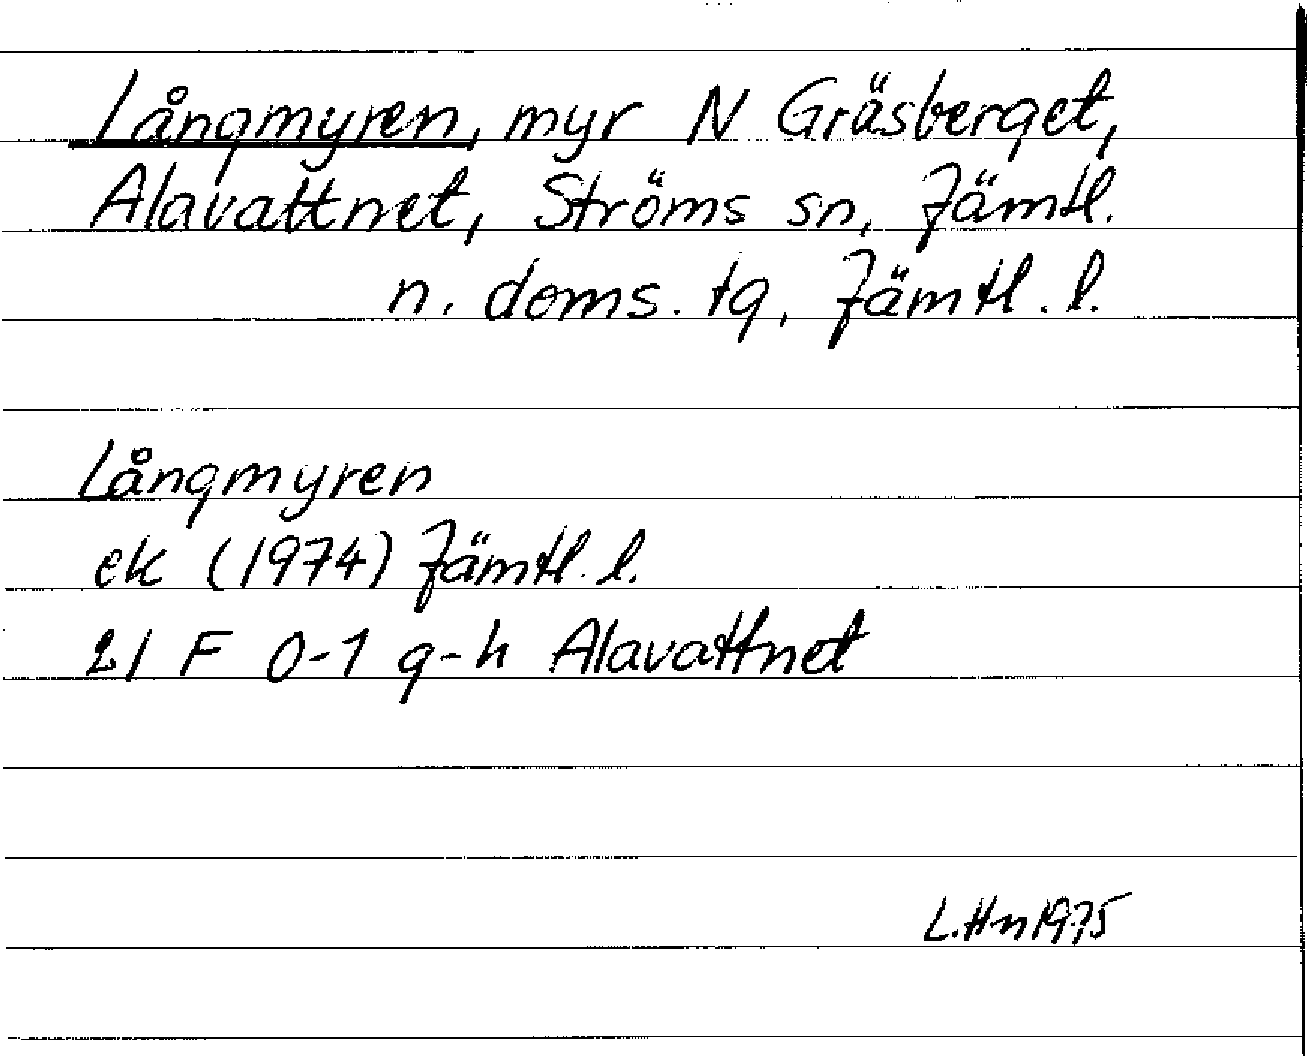 Långmyren, myr N Gräsberget,
Alavattnet, Ströms sn, Jämtl.
n. doms. tg, Jämtl. l.
Långmyren
ek (1974) Jämtl. l.
21 F 0-1 g-h Alavattnet
L.Hn 1975